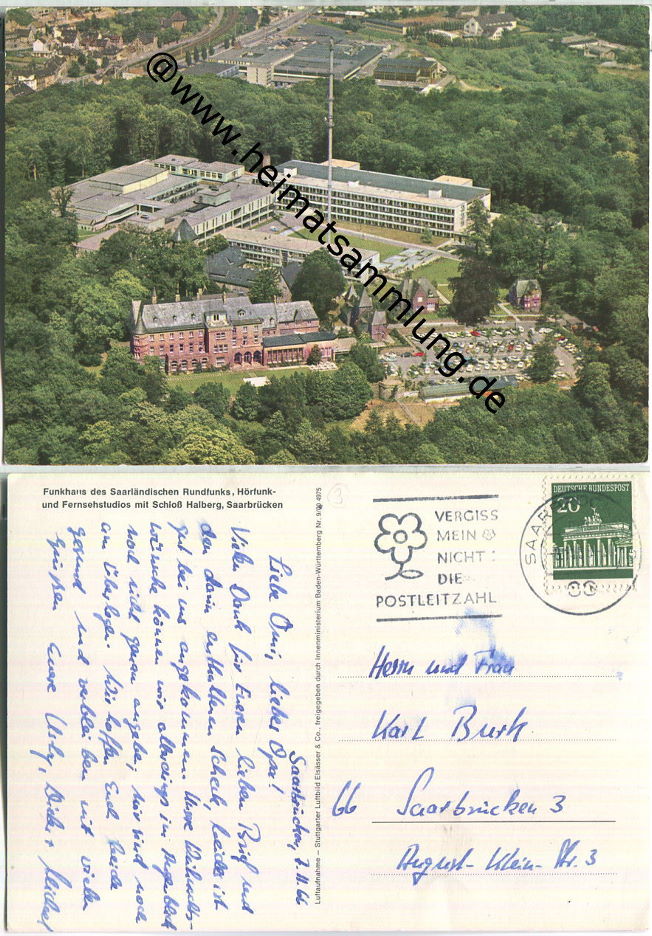 @www.heimatsammlung.de
Funkhaus des Saarländischen Rundfunks, Hörfunk-
und Fernsehstudios mit Schloß Halberg, Saarbrücken
Luftaufnahme – Stuttgarter Luftbild Elsässer & Co., freigegeben durch Innenministerium Baden-Württemberg Nr. 9/
VERGISS
MEIN
NICHT:
DIE
POSTLEITZAHL
DEUTSCHE BUNDESPOST
20
SAAR
66
Saarbrücken, 7.11.66
Liebe Omi, lieber Opa!
Vielen Dank für Eueren lieben Brief und
den darin enthaltenen Scheck, beides ist
gut bei uns angekommen. Unsere Weihnachts-
wünsche können wir allerdings im Augenblick
noch nicht genau angeben, wir sind noch
am Überlegen. Wir hoffen Euch beide
gesund und verbleiben mit vielen
Grüßen Euere Uschy, Dieter
Herrn und Frau
Karl Burk
66 Saarbrücken 3
August-Klein-Str. 3